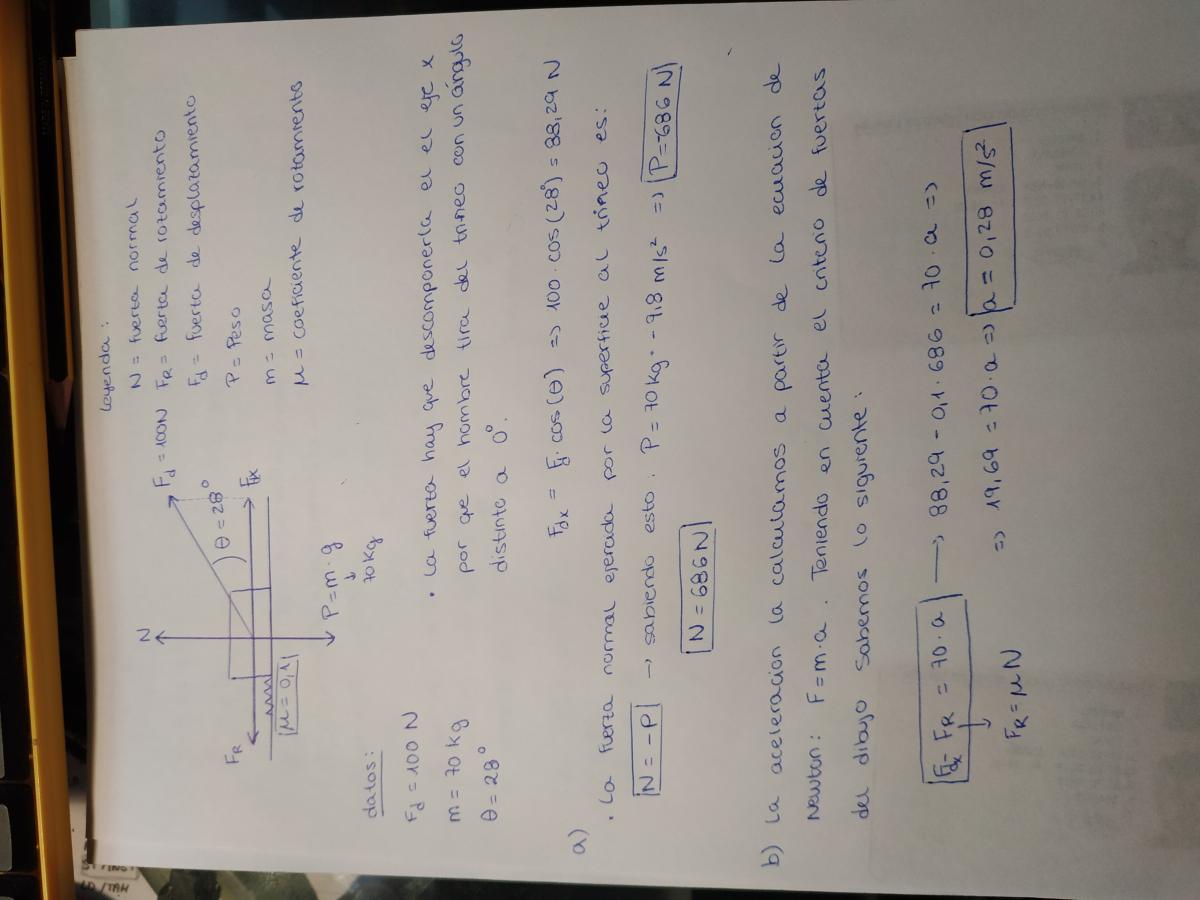 Leyenda:
N = fuerza normal
FR = fuerza de rozamiento
Fd = fuerza de desplazamiento
P = Peso
m = masa
μ = coeficiente de rozamiento
N
Fd = 100N
θ = 28°
Fdx
FR
μ = 0,1
P = m · g
↓
70 Kg
datos:
Fd = 100 N
m = 70 kg
θ = 28°
· La fuerza hay que descomponerla el el eje x
por que el hombre tira del trineo con un ángulo
distinto a 0°.
Fdx = Fd · cos(θ) => 100 · cos(28°) = 88,29 N
a)
· La fuerza normal ejerada por la superficie al trineo es:
N = -P → sabiendo esto. P = 70 Kg · -9,8 m/s² => P = -686 N
N = 686 N
b) La aceleracion la calculamos a partir de la ecuacion de
Newton: F = m·a. Teniendo en cuenta el criterio de fuerzas
del dibujo sabemos lo siguiente:
Fdx - FR = 70 · a → 88,29 - 0,1 · 686 = 70 · a =>
↓
FR = μN
=> 19,69 = 70 · a => a = 0,28 m/s²